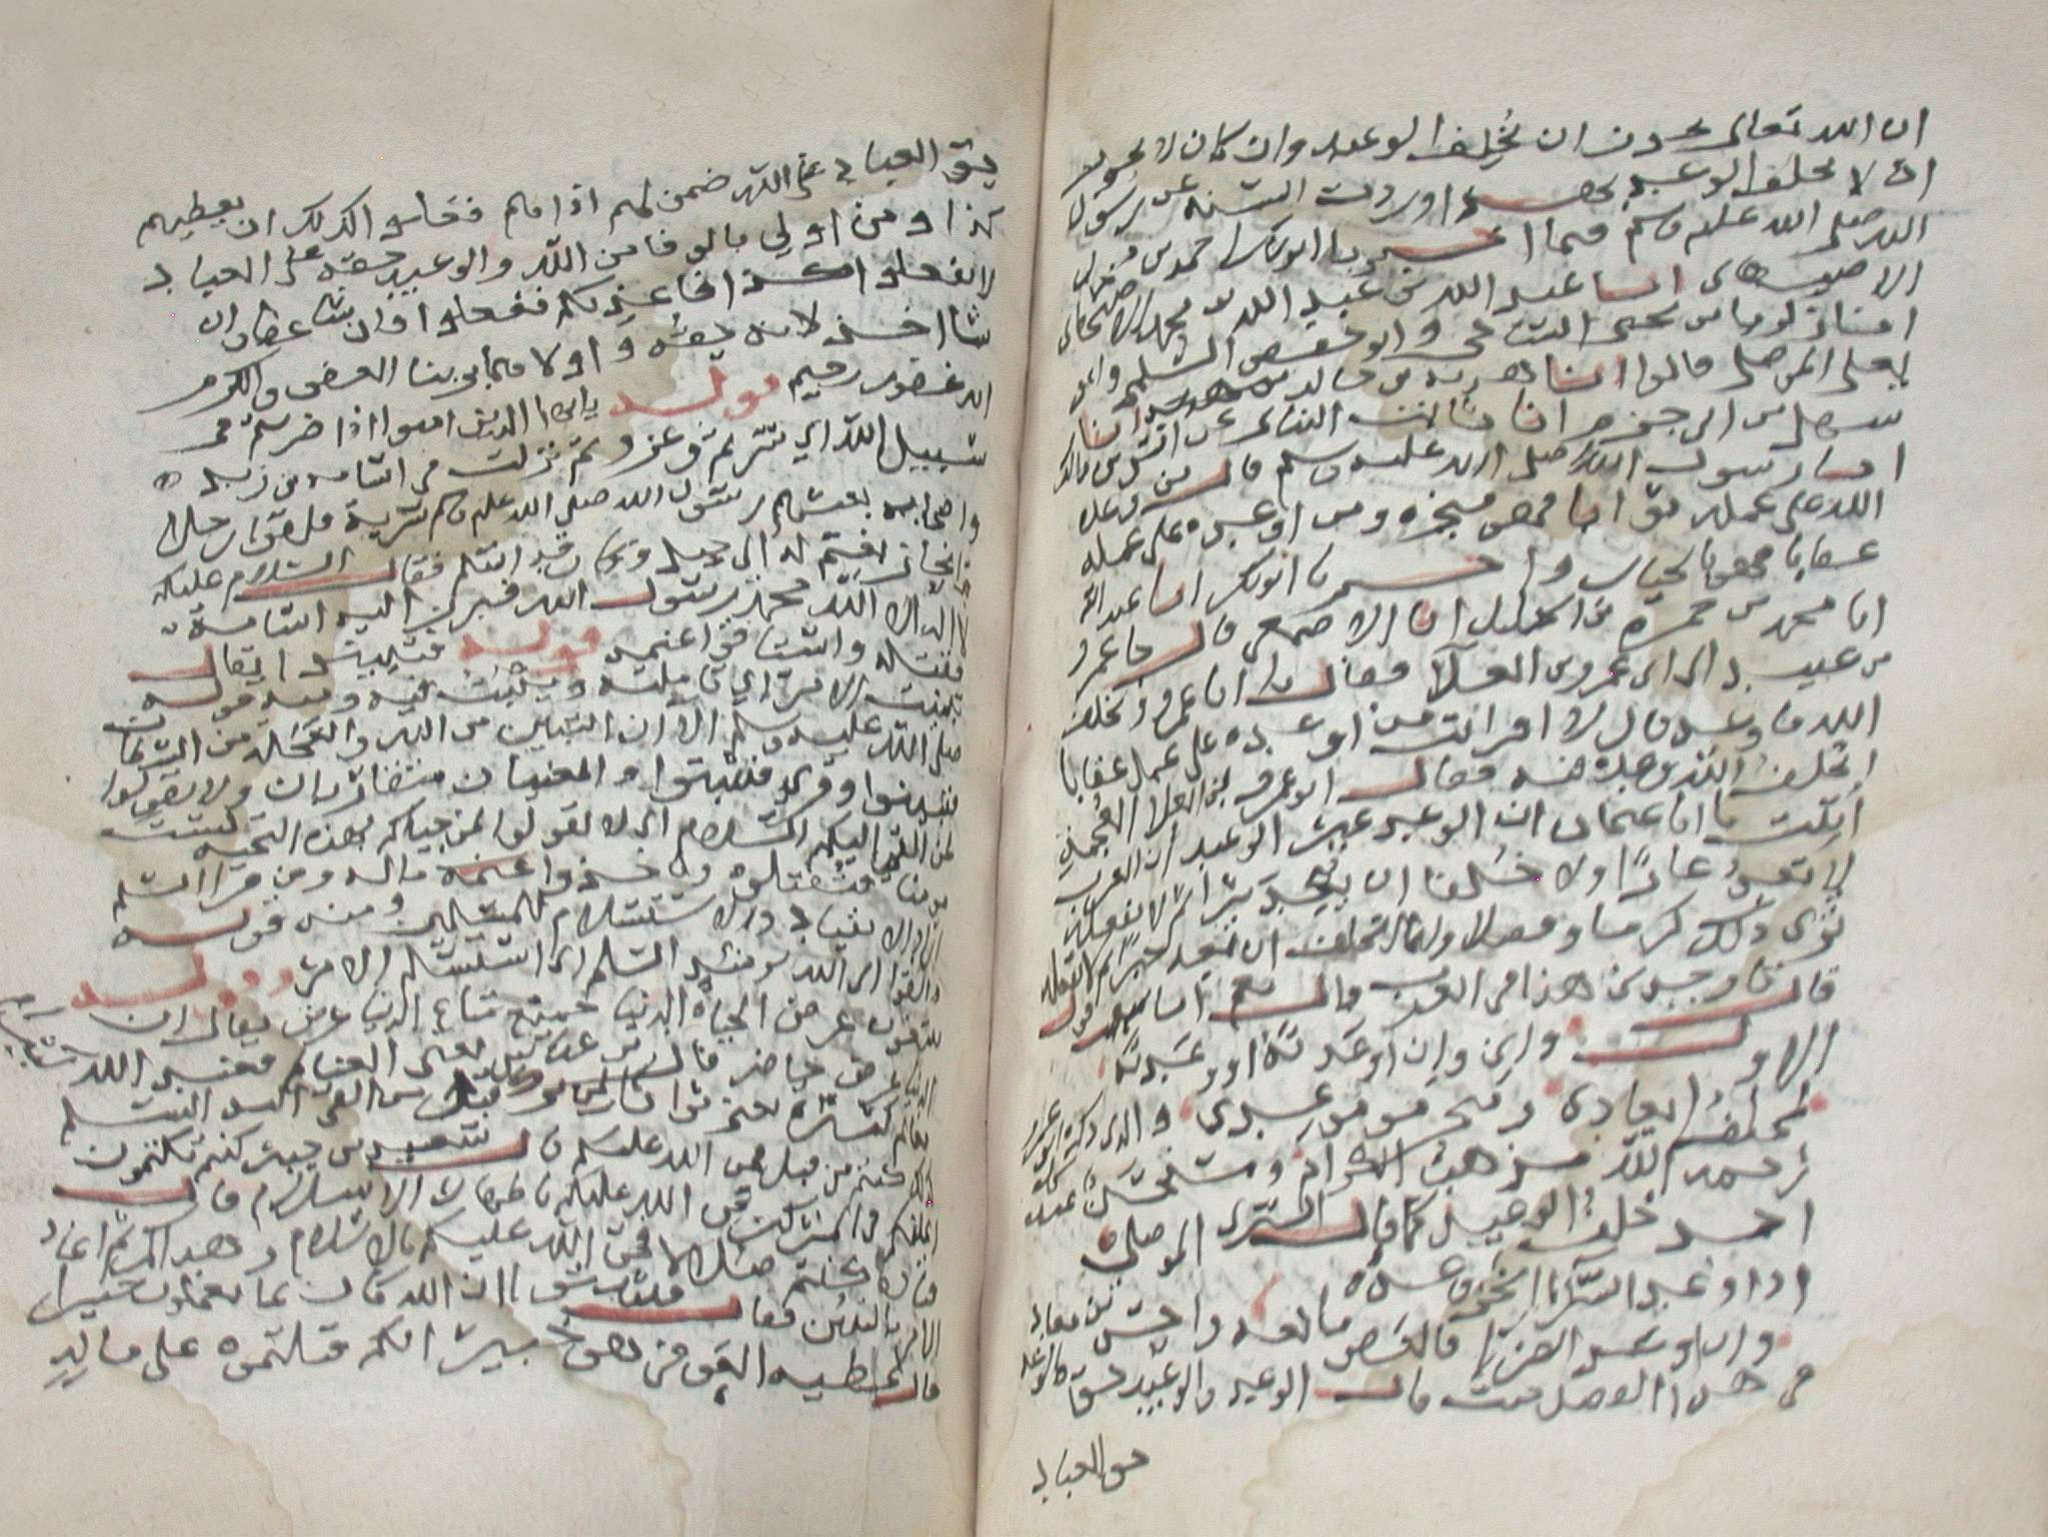 ان الله تعالى يجوز ان يُخلِف الوعيد وان كان لا يجوز
ان لا يخلف الوعد بهذا وردت السنة عن رسول
الله صلى الله عليه وسلم فيما اخبرنا ابو بكر احمد بن محمد
الاصبهاني انا عبد الله بن محمد الاصبهاني
انا زكريا بن يحيى الساجي وابو حفص السلمي وابو
يعلى الموصلي قالوا انا هدبة بن خالد انا
سهيل بن ابي حزم انا ثابت البناني عن انس بن مالك
ان رسول الله صلى الله عليه وسلم قال من وعده
الله على عمله ثوابا فهو منجزه ومن اوعده على عمله
عقابا فهو بالخيار واخبرنا ابو بكر انا عبد الله
انا محمد بن حمزة انا الاصمعي قال جا عمرو
بن عبيد الى ابي عمرو بن العلا فقال يا ابا عمرو ايخلف
الله ما وعده قال لا افرايت من اوعده على عمل عقابا
ايخلف الله وعده فيه فقال ابو عمرو بن العلا من العُجمة
اُتيت يا ابا عثمان ان الوعد غير الوعيد ان العرب
لا تعدّ عارًا ولا خُلفا ان يَعِد شرا ثم لا يفعله
ترى ذلك كرما وفضلا وانما الخلف ان يعد خيرا ثم لا يفعله
قال فاوجدني هذا في العرب قال نعم اما سمعت قول
الاول واني وان اوعدته او وعدته
لمخلف ايعادي ومنجز موعدي والذي ذكره ابو عمرو
رحمه الله مذهب الكرام ومستحسن عند كل
احد خلف الوعيد كما قال السري الموصلي
اذا وعد السرّا انجز وعده
وان اوعد الضرا فالعفو مانعه واحسن يحيى بن معاذ
في هذا الفصل حيث قال الوعد والوعيد حق فالوعد
حق العباد
حق العباد على الله ضمن لهم اذا فعلوا ذلك ان يعطيهم
كذا ومن اولى بالوفا من الله والوعيد حقه على العباد قال
لا تفعلوا كذا فاعذبكم ففعلوا فان شا عفا وان
شا اخذ لانه حقه واولاهما بربنا العفو والكرم
انه غفور رحيم قوله يايها الذين امنوا اذا ضربتم في
سبيل الله اي سرتم وغزوتم نزلت في اسامة بن زيد
واصحابه بعثهم رسول الله صلى الله عليه وسلم سرية فلقوا رجلا
فانحاز بغنم له الى جبل وكان قد اسلم فقال السلام عليكم
لا اله الا الله محمد رسول الله فبدر اليه اسامة
فقتله واستاقوا غنمه قوله فتبينوا يقال
تبينت الامر اي تاملته وتثبت فيه ومنه قوله
صلى الله عليه وسلم الا ان التبين من الله والعجلة من الشيطان
فتبينوا وقري فتثبتوا والمعنيان متقاربان ولا تقولوا
لمن القى اليكم السلام اي لا تقولوا لمن حياكم بهذه التحية لست
مومنا فتقتلوه وتاخذوا غنمه ماله ومن قرا السلم
اراد الانقياد والاستسلام للمسلمين ومنه قوله
والقوا الى الله يومئذ السلم اي استسلم الامر قوله
تبتغون عرض الحياة الدنيا جميع متاع الدنيا عرض يقال ان
الدنيا عرض حاضر قال ابن عباس يعني الغنايم فعند الله
مغانم كثيرة يعني ثوابا كثيرا لمن ترك قتل من القى اليه السلم
كذلك كنتم من قبل فمن الله عليكم قال سعيد بن جبير كنتم تكتمون
ايمانكم في المشركين فمن الله عليكم باظهار الاسلام قال
قتادة كنتم ضلالا فمن الله عليكم بالاسلام وهداكم ثم اعاد
الامر بالتبين فقال فتبينوا ان الله كان بما تعملون خبيرا
قال عطيه العوفي هو خبير انكم قتلتموه على ماله